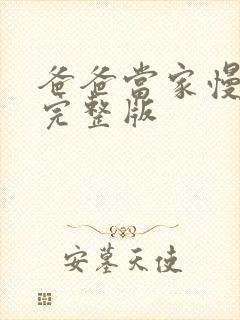 爸爸當家慢
完整版
安墓天使